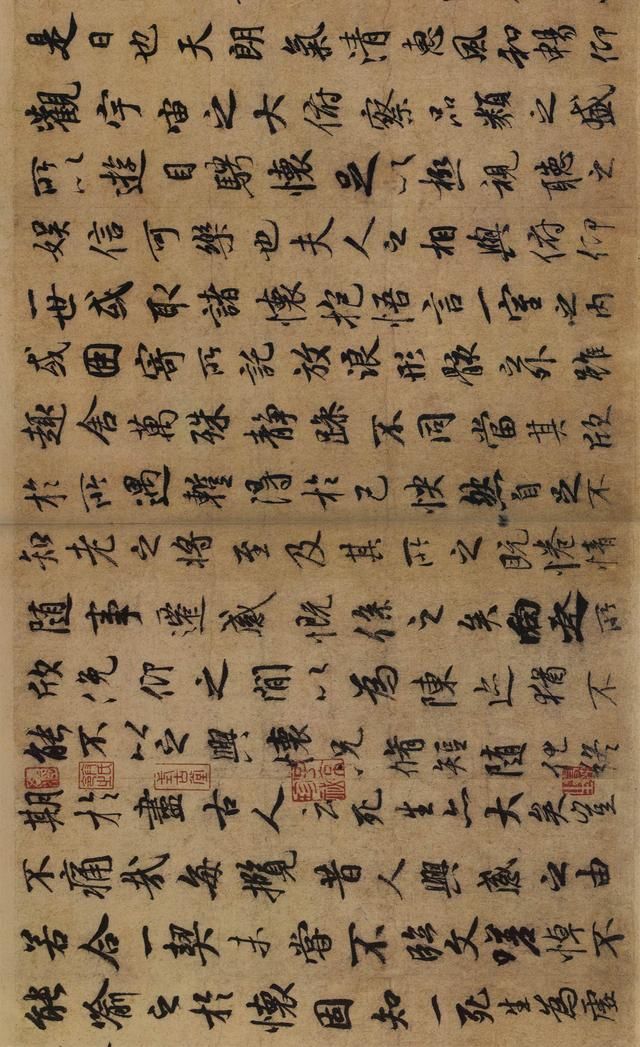 是日也天朗氣清惠風和暢仰
觀宇宙之大俯察品類之盛
所以遊目騁懷足以極視聽之
娛信可樂也夫人之相與俯仰
一世或取諸懷抱悟言一室之內
或因寄所託放浪形骸之外雖
趣舍萬殊靜躁不同當其欣
於所遇暫得於己怏然自足不
知老之將至及其所之既惓情
隨事遷感慨係之矣向之所
欣俛仰之間以為陳迹猶不
能不以之興懷況脩短隨化終
期於盡古人云死生亦大矣豈
不痛哉每攬昔人興感之由
若合一契未嘗不臨文嗟悼不
能喻之於懷固知一死生為虛